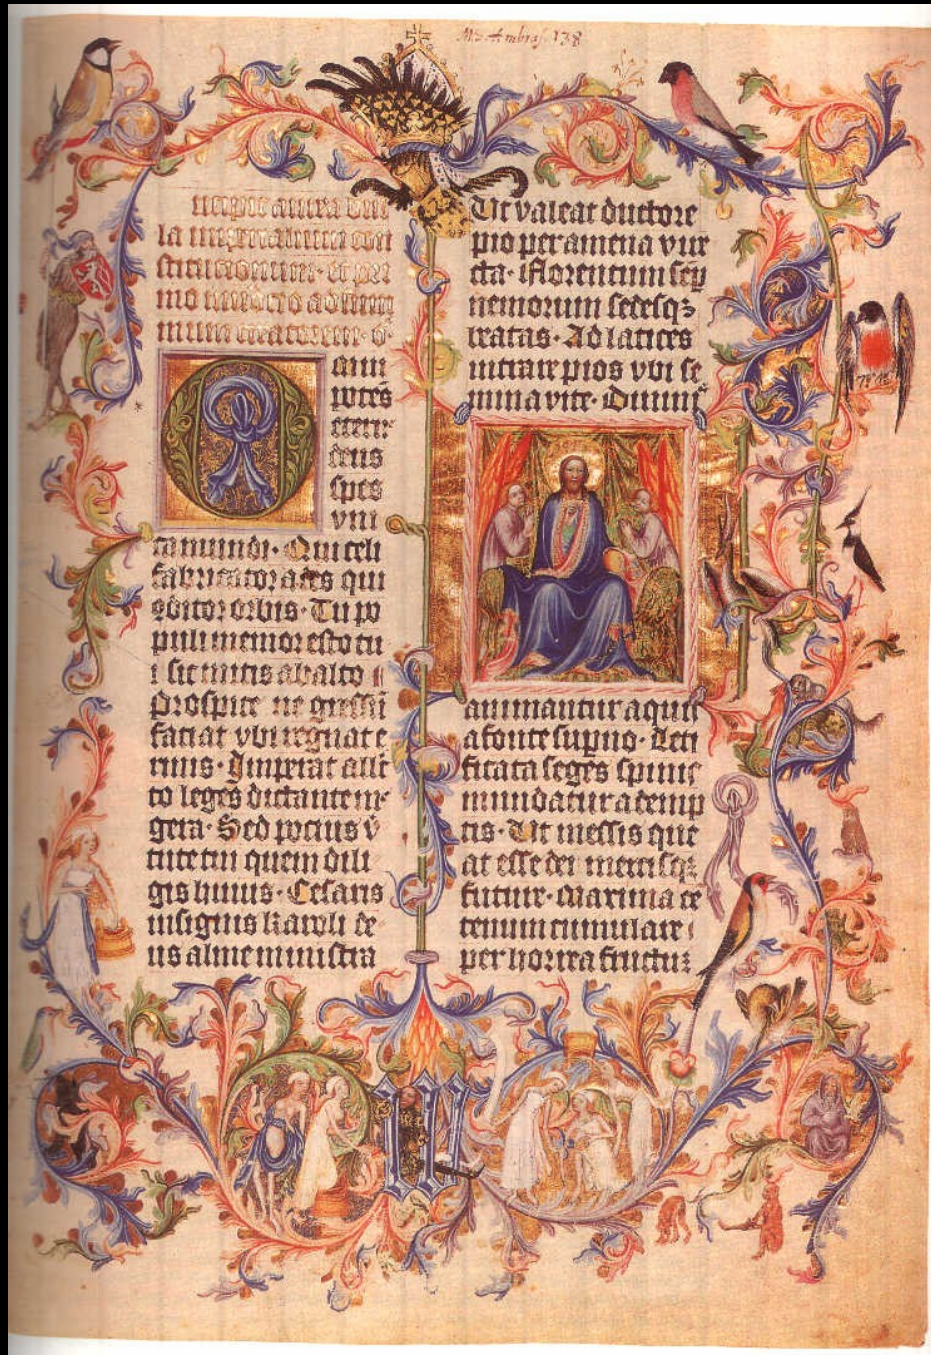 Ms Ambras. 138
incipit aurea bul
la imperialium con
stitucionum · et pri
mo invocacio ad sum
mum creatorem · o
mni
potēs
etern
deus
spes
vni
ca mundi · Qui celi
fabricator ades qui
ꝯditor orbis · Tu po
puli memor esto tu
i sic mitis ab alto
Prospice ne gressū
faciat vbi regnat e
rinis · Imperat alle
cto leges dictante me
gera · Sed pocius v̉
tute tui quem dili
gis huius · Cesaris
insignis karoli de
us alme ministra
Ut valeat ductore
pio per amena vire
cta · Florentum semꝑ
nemorum sedesqꝫ
beatas · Ad latices
intrare pios vbi se
mina vite · Diuinis
animantur aquis
a fonte suꝑno · Leti
ficata seges spinis
mundatur ademp
tis · Ut messis que
at esse dei mercisqꝫ
future · Maxima ce
tenum cumulare
per horrea fructuꝫ
W